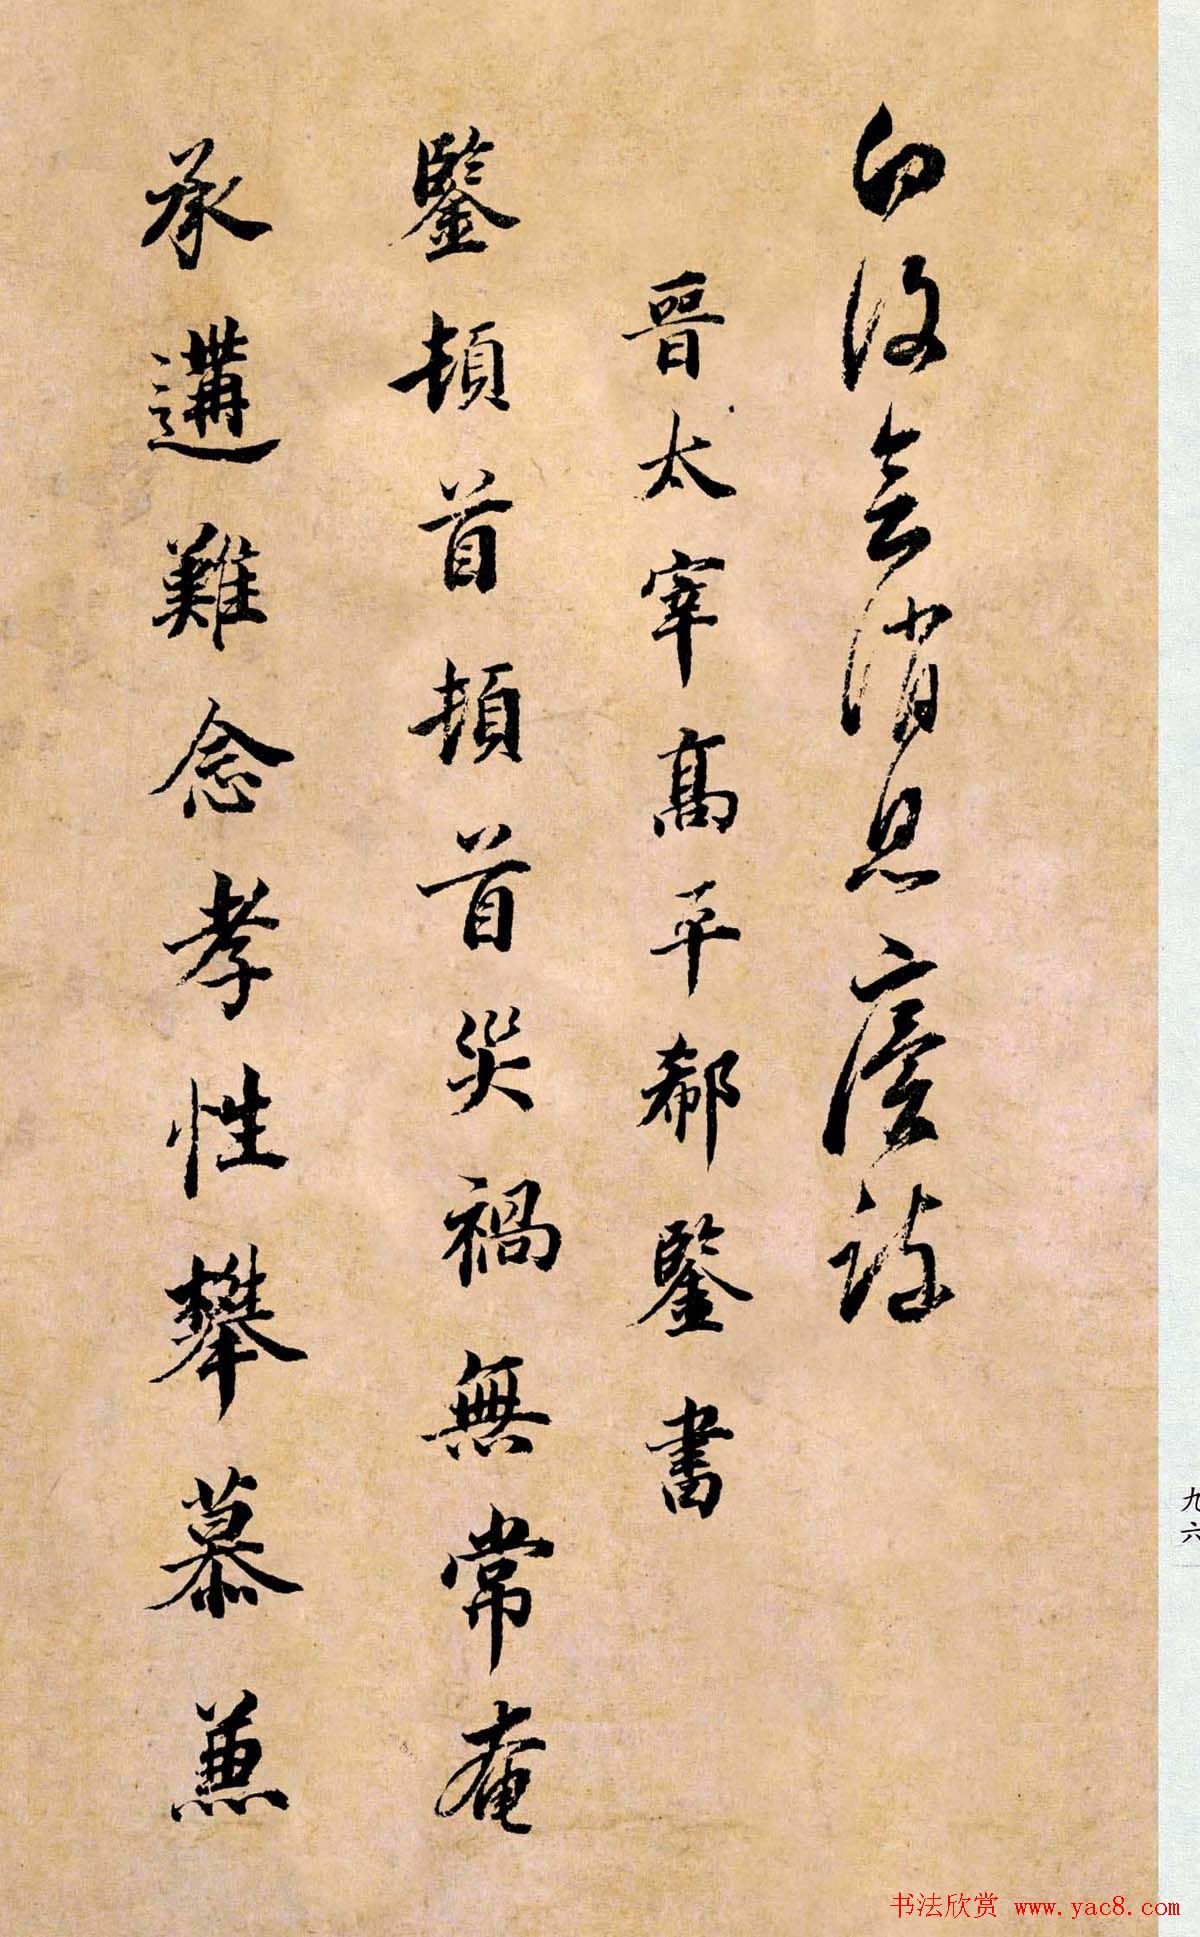 白復會消息廙疏
晉太宰高平郗鑒書
鑒頓首頓首災禍無常奄
承遘難念孝性攀慕兼
九六
书法欣赏 www.yac8.com